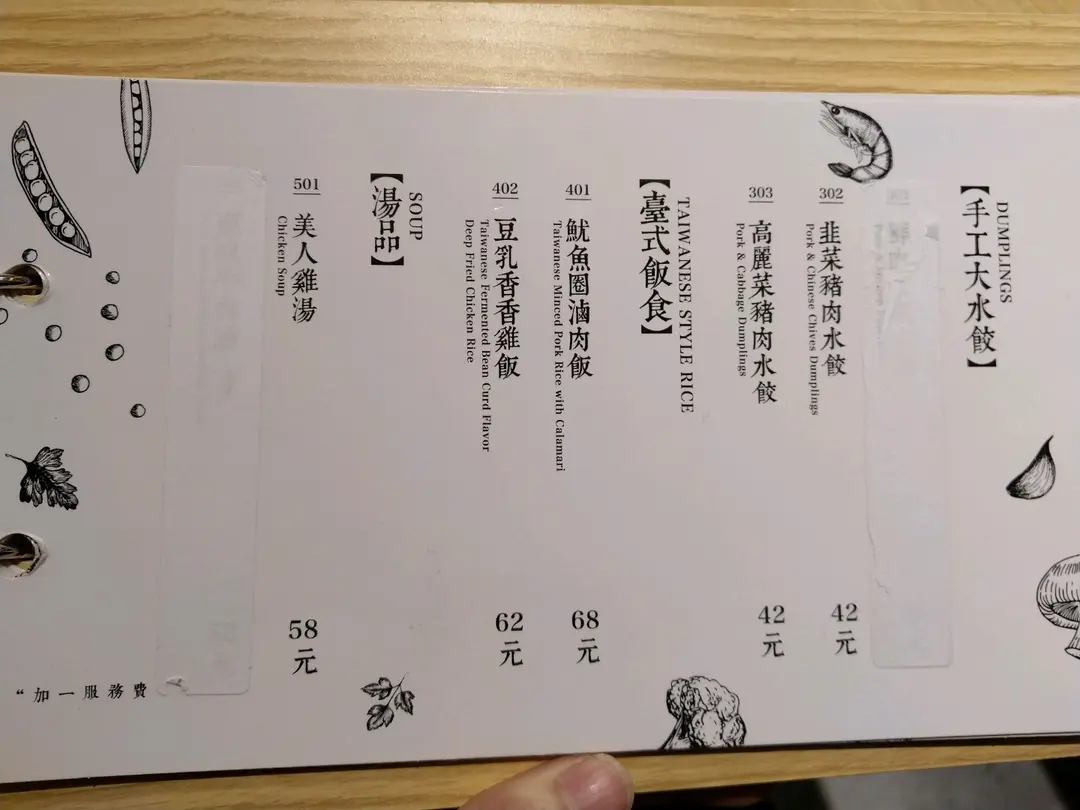 DUMPLINGS
【手工大水餃】
302
韭菜豬肉水餃
Pork & Chinese Chives Dumplings
42元
303
高麗菜豬肉水餃
Pork & Cabbage Dumplings
42元
TAIWANESE STYLE RICE
【臺式飯食】
401
魷魚圈滷肉飯
Taiwanese Minced Pork Rice with Calamari
68元
402
豆乳香香雞飯
Taiwanese Fermented Bean Curd Flavor
Deep Fried Chicken Rice
62元
SOUP
【湯品】
501
美人雞湯
Chicken Soup
58元
“加一服務費